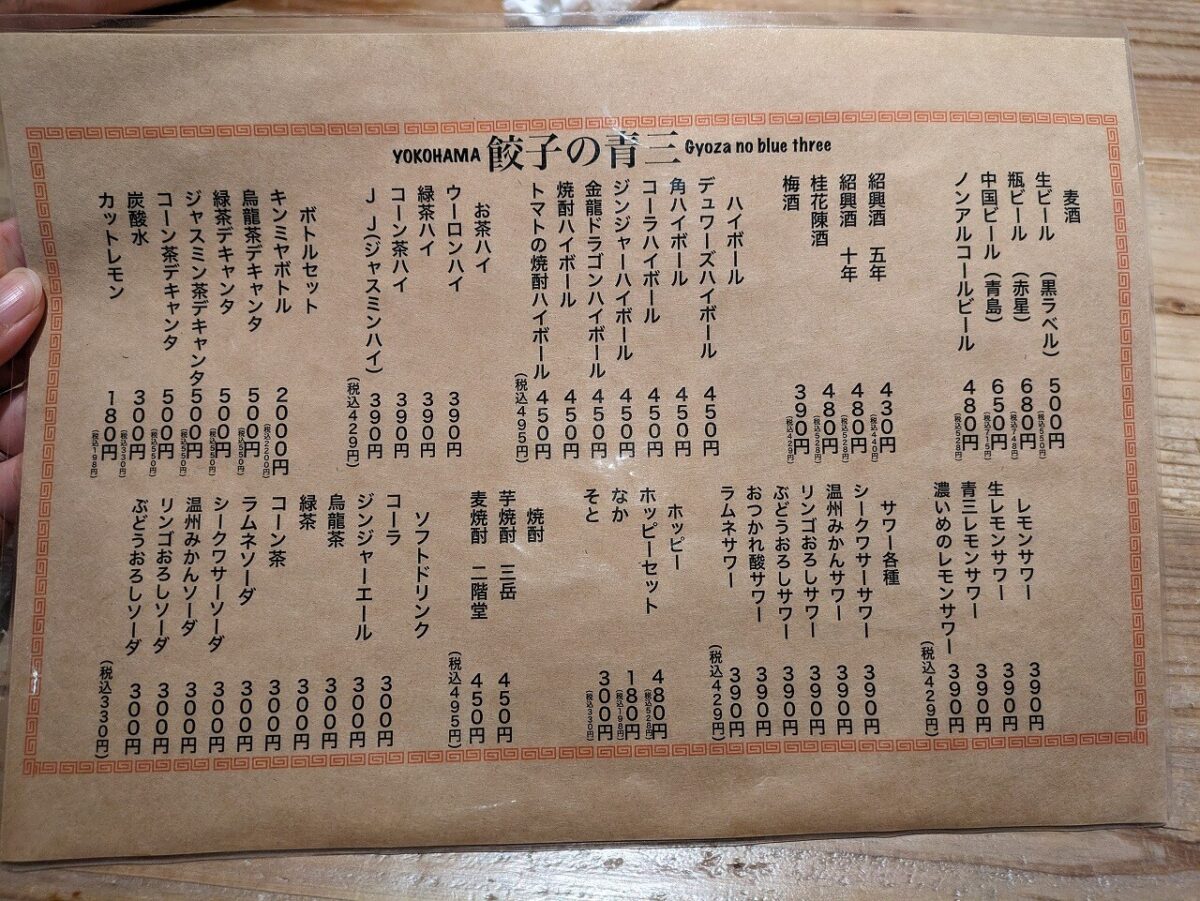 YOKOHAMA 餃子の青三 Gyoza no blue three
麦酒
生ビール (黒ラベル) 500円 (税込550円)
瓶ビール (赤星) 680円 (税込748円)
中国ビール (青島) 650円 (税込715円)
ノンアルコールビール 480円 (税込528円)
紹興酒 五年 430円 (税込440円)
紹興酒 十年 480円 (税込528円)
桂花陳酒 480円 (税込528円)
梅酒 390円 (税込429円)
ハイボール
デュワーズハイボール 450円
角ハイボール 450円
コーラハイボール 450円
ジンジャーハイボール 450円
金龍ドラゴンハイボール 450円
焼酎ハイボール 450円
トマトの焼酎ハイボール 450円
(税込495円)
お茶ハイ
ウーロンハイ 390円
緑茶ハイ 390円
コーン茶ハイ 390円
JJ(ジャスミンハイ) 390円
(税込429円)
ボトルセット
キンミヤボトル 2000円 (税込2200円)
烏龍茶デキャンタ 500円 (税込550円)
緑茶デキャンタ 500円 (税込550円)
ジャスミン茶デキャンタ 500円 (税込550円)
コーン茶デキャンタ 500円 (税込550円)
炭酸水 300円 (税込330円)
カットレモン 180円 (税込198円)
レモンサワー
生レモンサワー 390円
青三レモンサワー 390円
濃いめのレモンサワー 390円
390円
(税込429円)
サワー各種
シークワサーサワー 390円
温州みかんサワー 390円
リンゴおろしサワー 390円
ぶどうおろしサワー 390円
おつかれ酸サワー 390円
ラムネサワー 390円
(税込429円)
ホッピー
ホッピーセット 480円 (税込528円)
なか 180円 (税込198円)
そと 300円 (税込330円)
焼酎
芋焼酎 三岳 450円
麦焼酎 二階堂 450円
(税込495円)
ソフトドリンク
コーラ 300円
ジンジャーエール 300円
烏龍茶 300円
緑茶 300円
コーン茶 300円
ラムネソーダ 300円
シークワサーソーダ 300円
温州みかんソーダ 300円
リンゴおろしソーダ 300円
ぶどうおろしソーダ 300円
(税込330円)